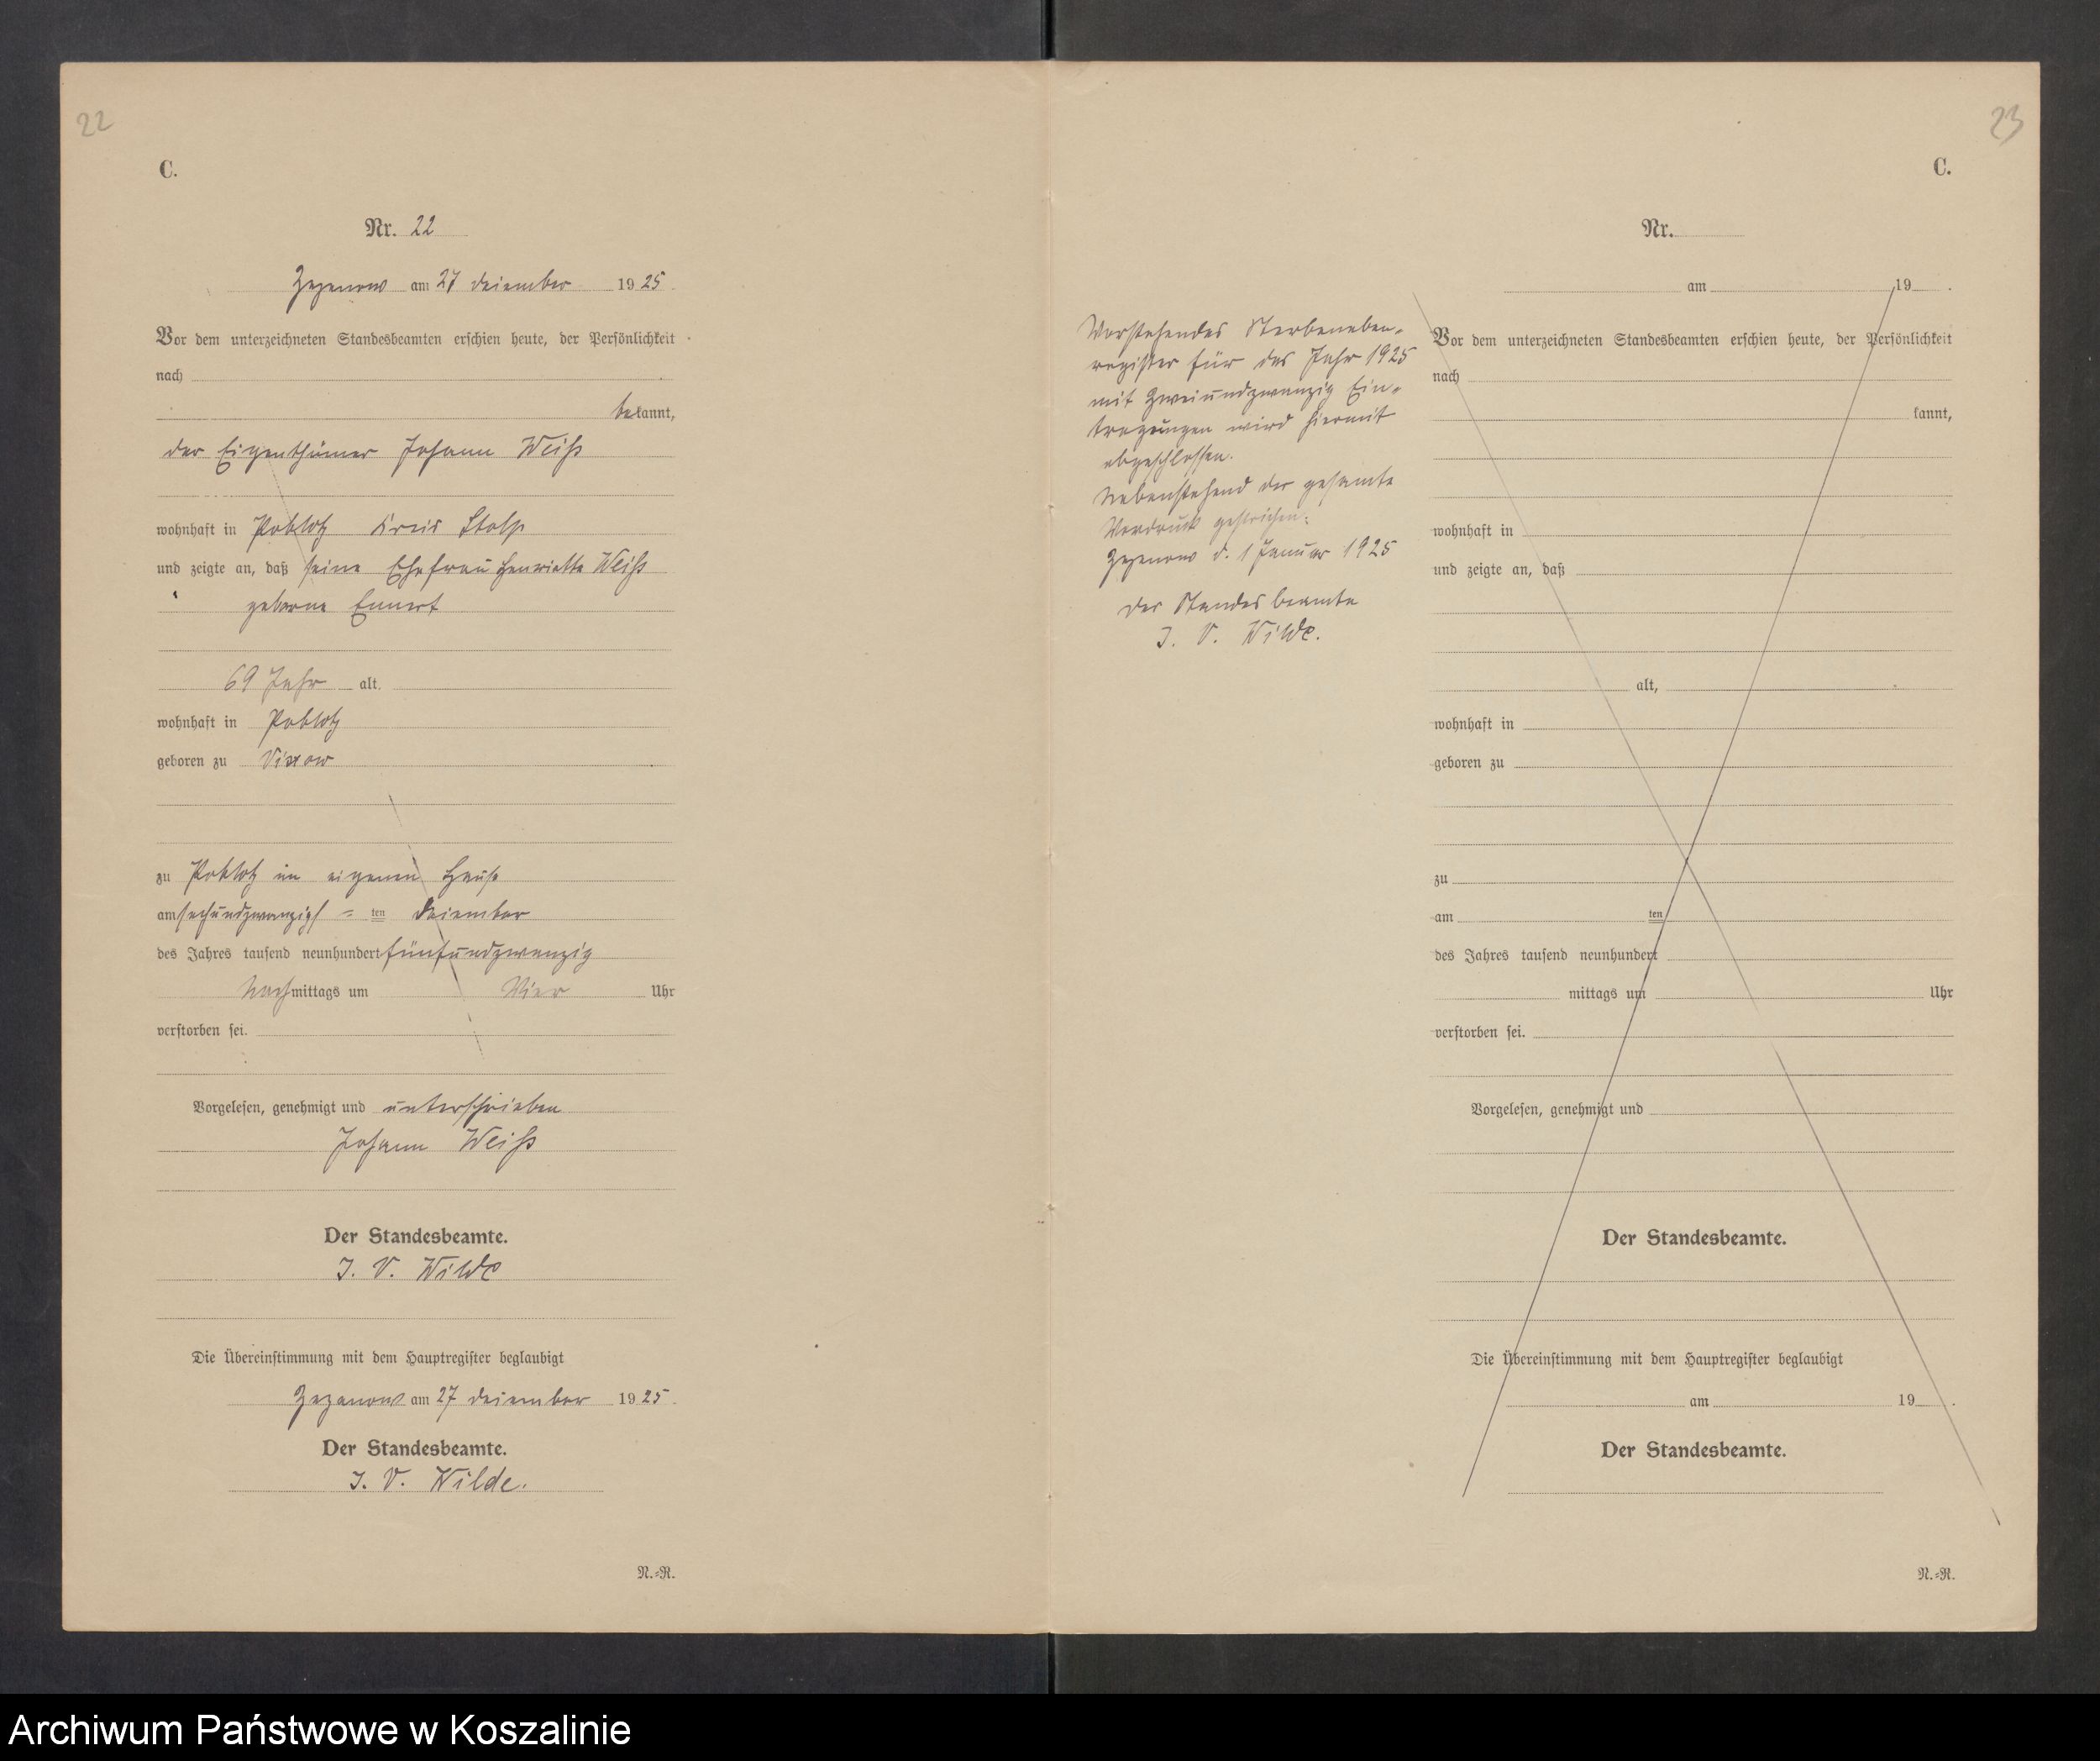 22
C.
Nr. 22
Zezenow am 27 Deiember 1925.
Vor dem unterzeichneten Standesbeamten erschien heute, der Persönlichkeit
nach
bekannt,
der Eigenthümer Johann Weiß
wohnhaft in Poblotz Kreis Stolp
und zeigte an, daß seine Ehefrau Henriette Weiß
geborne
69 Jahr alt.
wohnhaft in Poblotz
geboren zu Vixow
zu Poblotz im eigenen Hause
am sechundzwanzigs = ten Deiember
des Jahres tausend neunhundert fünfundzwanzig
Nachmittags um Vier Uhr
verstorben sei.
Vorgelesen, genehmigt und unterschrieben
Johann Weiß
Der Standesbeamte.
J. V. Wilde
Die Übereinstimmung mit dem Hauptregister beglaubigt
Zezenow am 27 Deiember 1925.
Der Standesbeamte.
J. V. Wilde.
N.=R.
23
C.
Nr.
am 19 .
Vorstehendes Sterbeneben-
register für das Jahr 1925
mit Zweiundzwanzig Ein-
tragungen wird hiermit
abgeschlossen.
Nebenstehend der gesamte
Vordruck gestrichen:
Zezenow d. 1 Januar 1925
Der Standesbeamte
J. V. Wilde.
Vor dem unterzeichneten Standesbeamten erschien heute, der Persönlichkeit
nach
kannt,
wohnhaft in
und zeigte an, daß
alt,
wohnhaft in
geboren zu
zu
am ten
des Jahres tausend neunhundert
mittags um Uhr
verstorben sei.
Vorgelesen, genehmigt und
Der Standesbeamte.
Die Übereinstimmung mit dem Hauptregister beglaubigt
am 19 .
Der Standesbeamte.
N.=R.
Archiwum Państwowe w Koszalinie